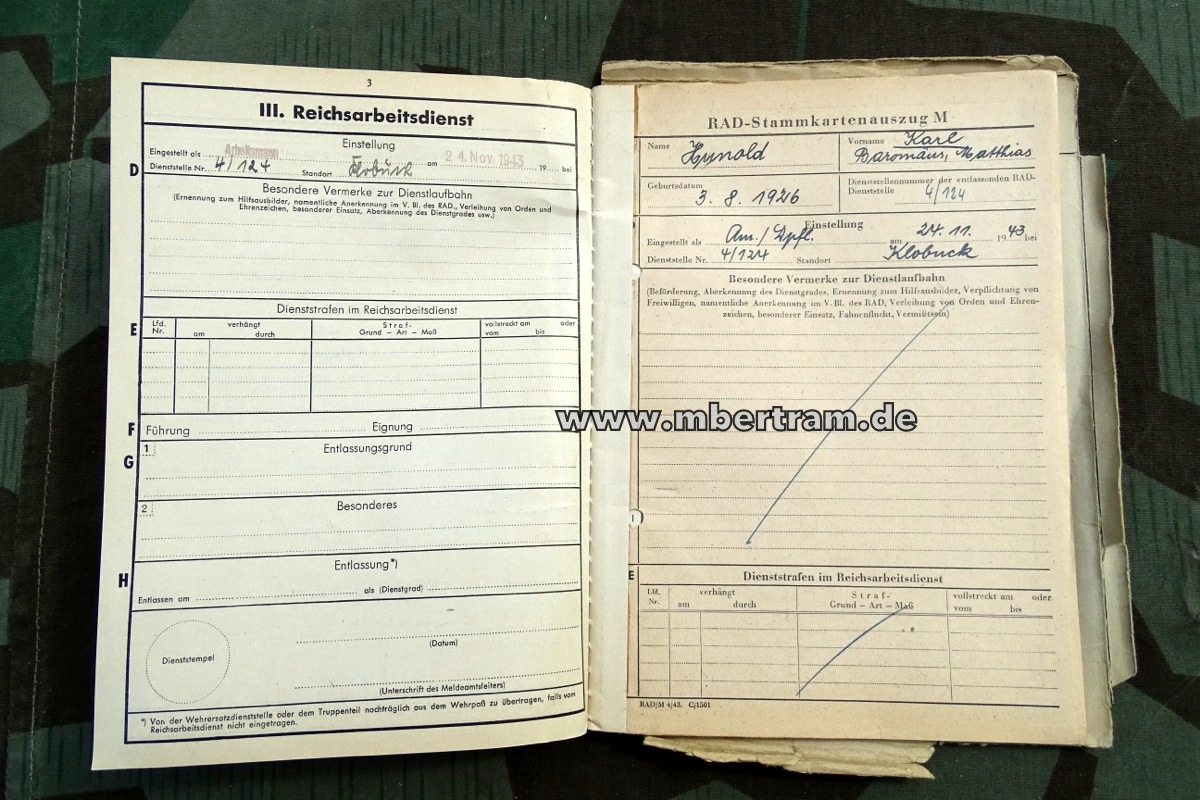 3
III. Reichsarbeitsdienst
Einstellung
Eingestellt als Arbeitsmann am 24. Nov. 1943 19 bei
D Dienststelle Nr. 4/124 Standort Klobuck
Besondere Vermerke zur Dienstlaufbahn
(Ernennung zum Hilfsausbilder, namentliche Anerkennung im V. Bl. des RAD., Verleihung von Orden und
Ehrenzeichen, besonderer Einsatz, Aberkennung des Dienstgrades usw.)
Dienststrafen im Reichsarbeitsdienst
E Lfd. Nr. verhängt am durch Straf- Grund – Art – Maß vollstreckt am oder vom bis
F Führung Eignung
G 1 Entlassungsgrund
2 Besonderes
H Entlassung*)
Entlassen am als (Dienstgrad)
(Datum)
Dienststempel
(Unterschrift des Meldeamtsleiters)
*) Von der Wehrersatzdienststelle oder dem Truppenteil nachträglich aus dem Wehrpaß zu übertragen, falls vom
Reichsarbeitsdienst nicht eingetragen.
RAD-Stammkartenauszug M
Name Hunold Vorname Karl
Baromäus, Matthias
Geburtsdatum 3. 8. 1926
Dienststellennummer der entlassenden RAD-
Dienststelle 4/124
Einstellung
Eingestellt als Am./Dpfl. am 24. 11. 1943 bei
Dienststelle Nr. 4/124 Standort Klobuck
Besondere Vermerke zur Dienstlaufbahn
(Beförderung, Aberkennung des Dienstgrades, Ernennung zum Hilfsausbilder, Verpflichtung von
Freiwilligen, namentliche Anerkennung im V. Bl. des RAD, Verleihung von Orden und Ehren-
zeichen, besonderer Einsatz, Fahnenflucht, Vermißtsein)
www.mbertram.de
E Dienststrafen im Reichsarbeitsdienst
Lfd. Nr. verhängt am durch Straf- Grund – Art – Maß vollstreckt am oder vom bis
RAD/M 4/43. C/1501